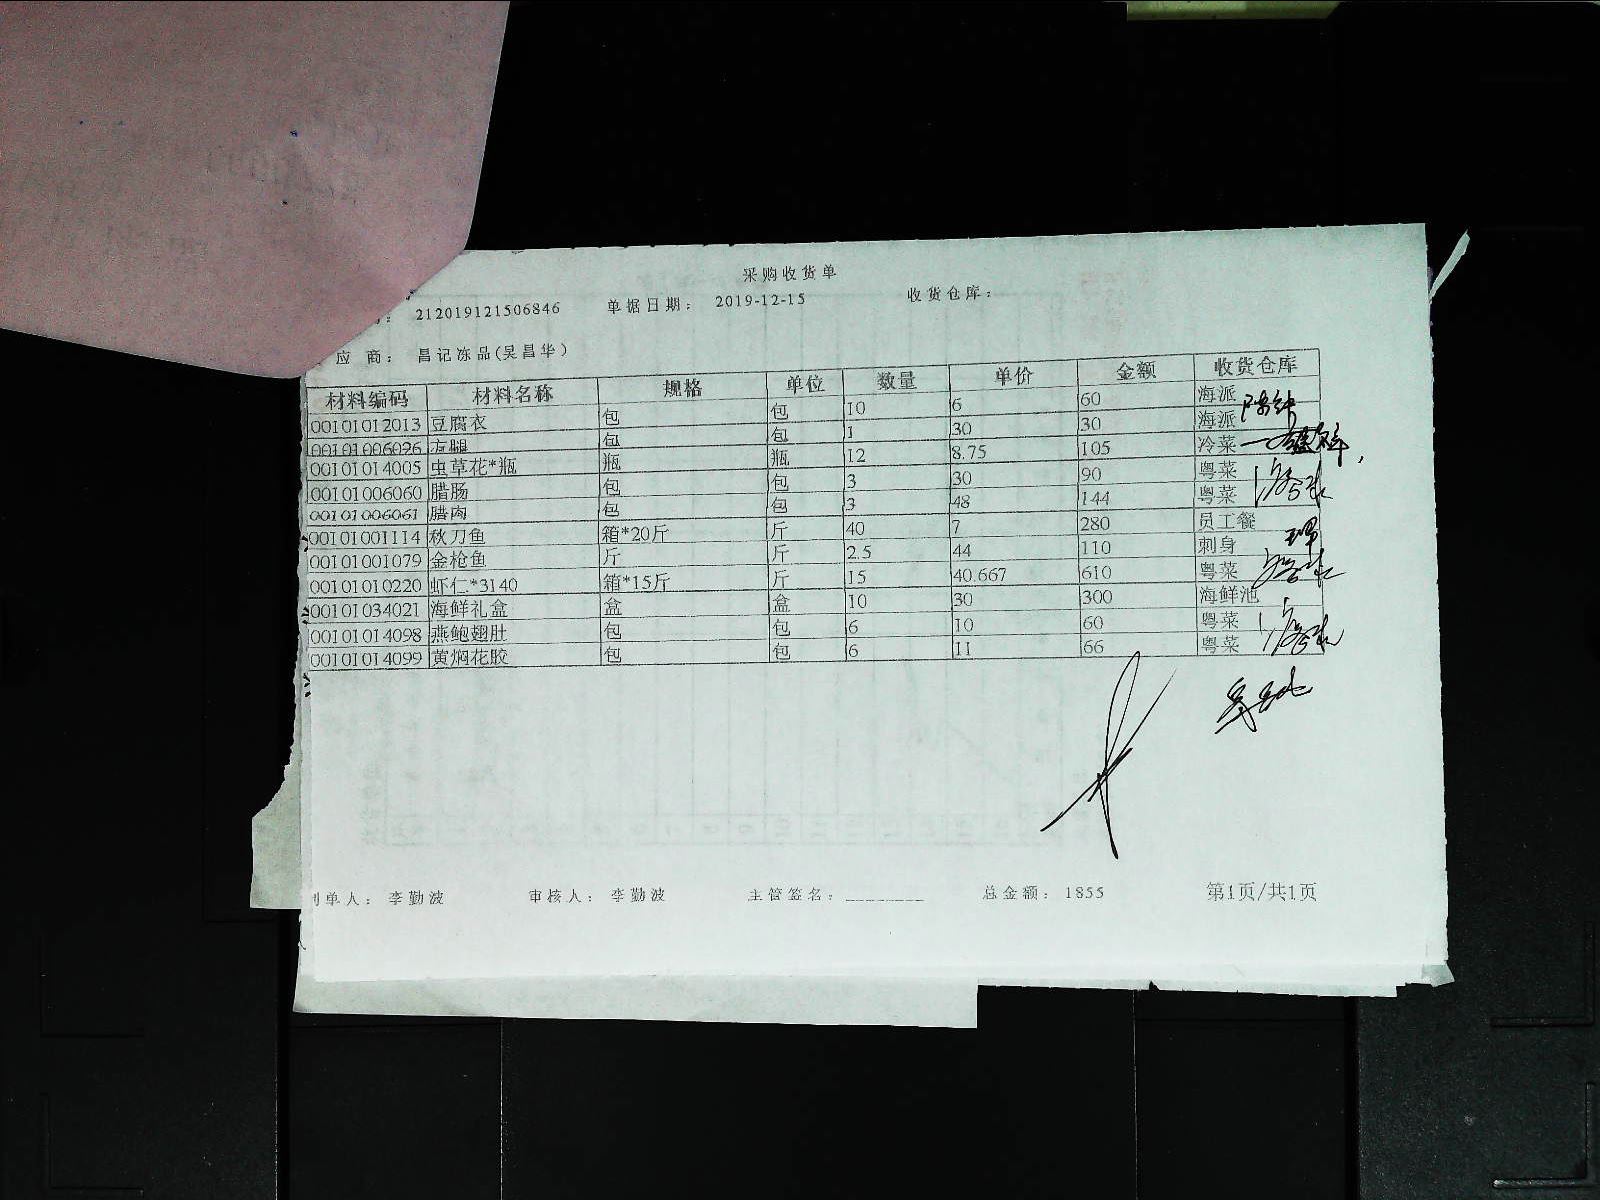 采购收货单
212019121506846 单据日期： 2019-12-15 收货仓库：
应 商： 昌记冻品(吴昌华)
材料编码 材料名称 规格 单位 数量 单价 金额 收货仓库
00101012013 豆腐衣 包 包 10 6 60 海派
00101006096 方腿 包 包 1 30 30 海派
00101014005 虫草花*瓶 瓶 瓶 12 8.75 105 冷菜
00101006060 腊肠 包 包 3 30 90 粤菜
00101006061 腊肉 包 包 3 48 144 粤菜
00101001114 秋刀鱼 箱*20斤 斤 40 7 280 员工餐
00101001079 金枪鱼 斤 斤 2.5 44 110 刺身
00101010220 虾仁*3140 箱*15斤 斤 15 40.667 610 粤菜
00101034021 海鲜礼盒 盒 盒 10 30 300 海鲜池
00101014098 燕鲍翅肚 包 包 6 10 60 粤菜
00101014099 黄焖花胶 包 包 6 11 66 粤菜
制单人： 李勤波 审核人： 李勤波 主管签名：________ 总金额： 1855 第1页/共1页